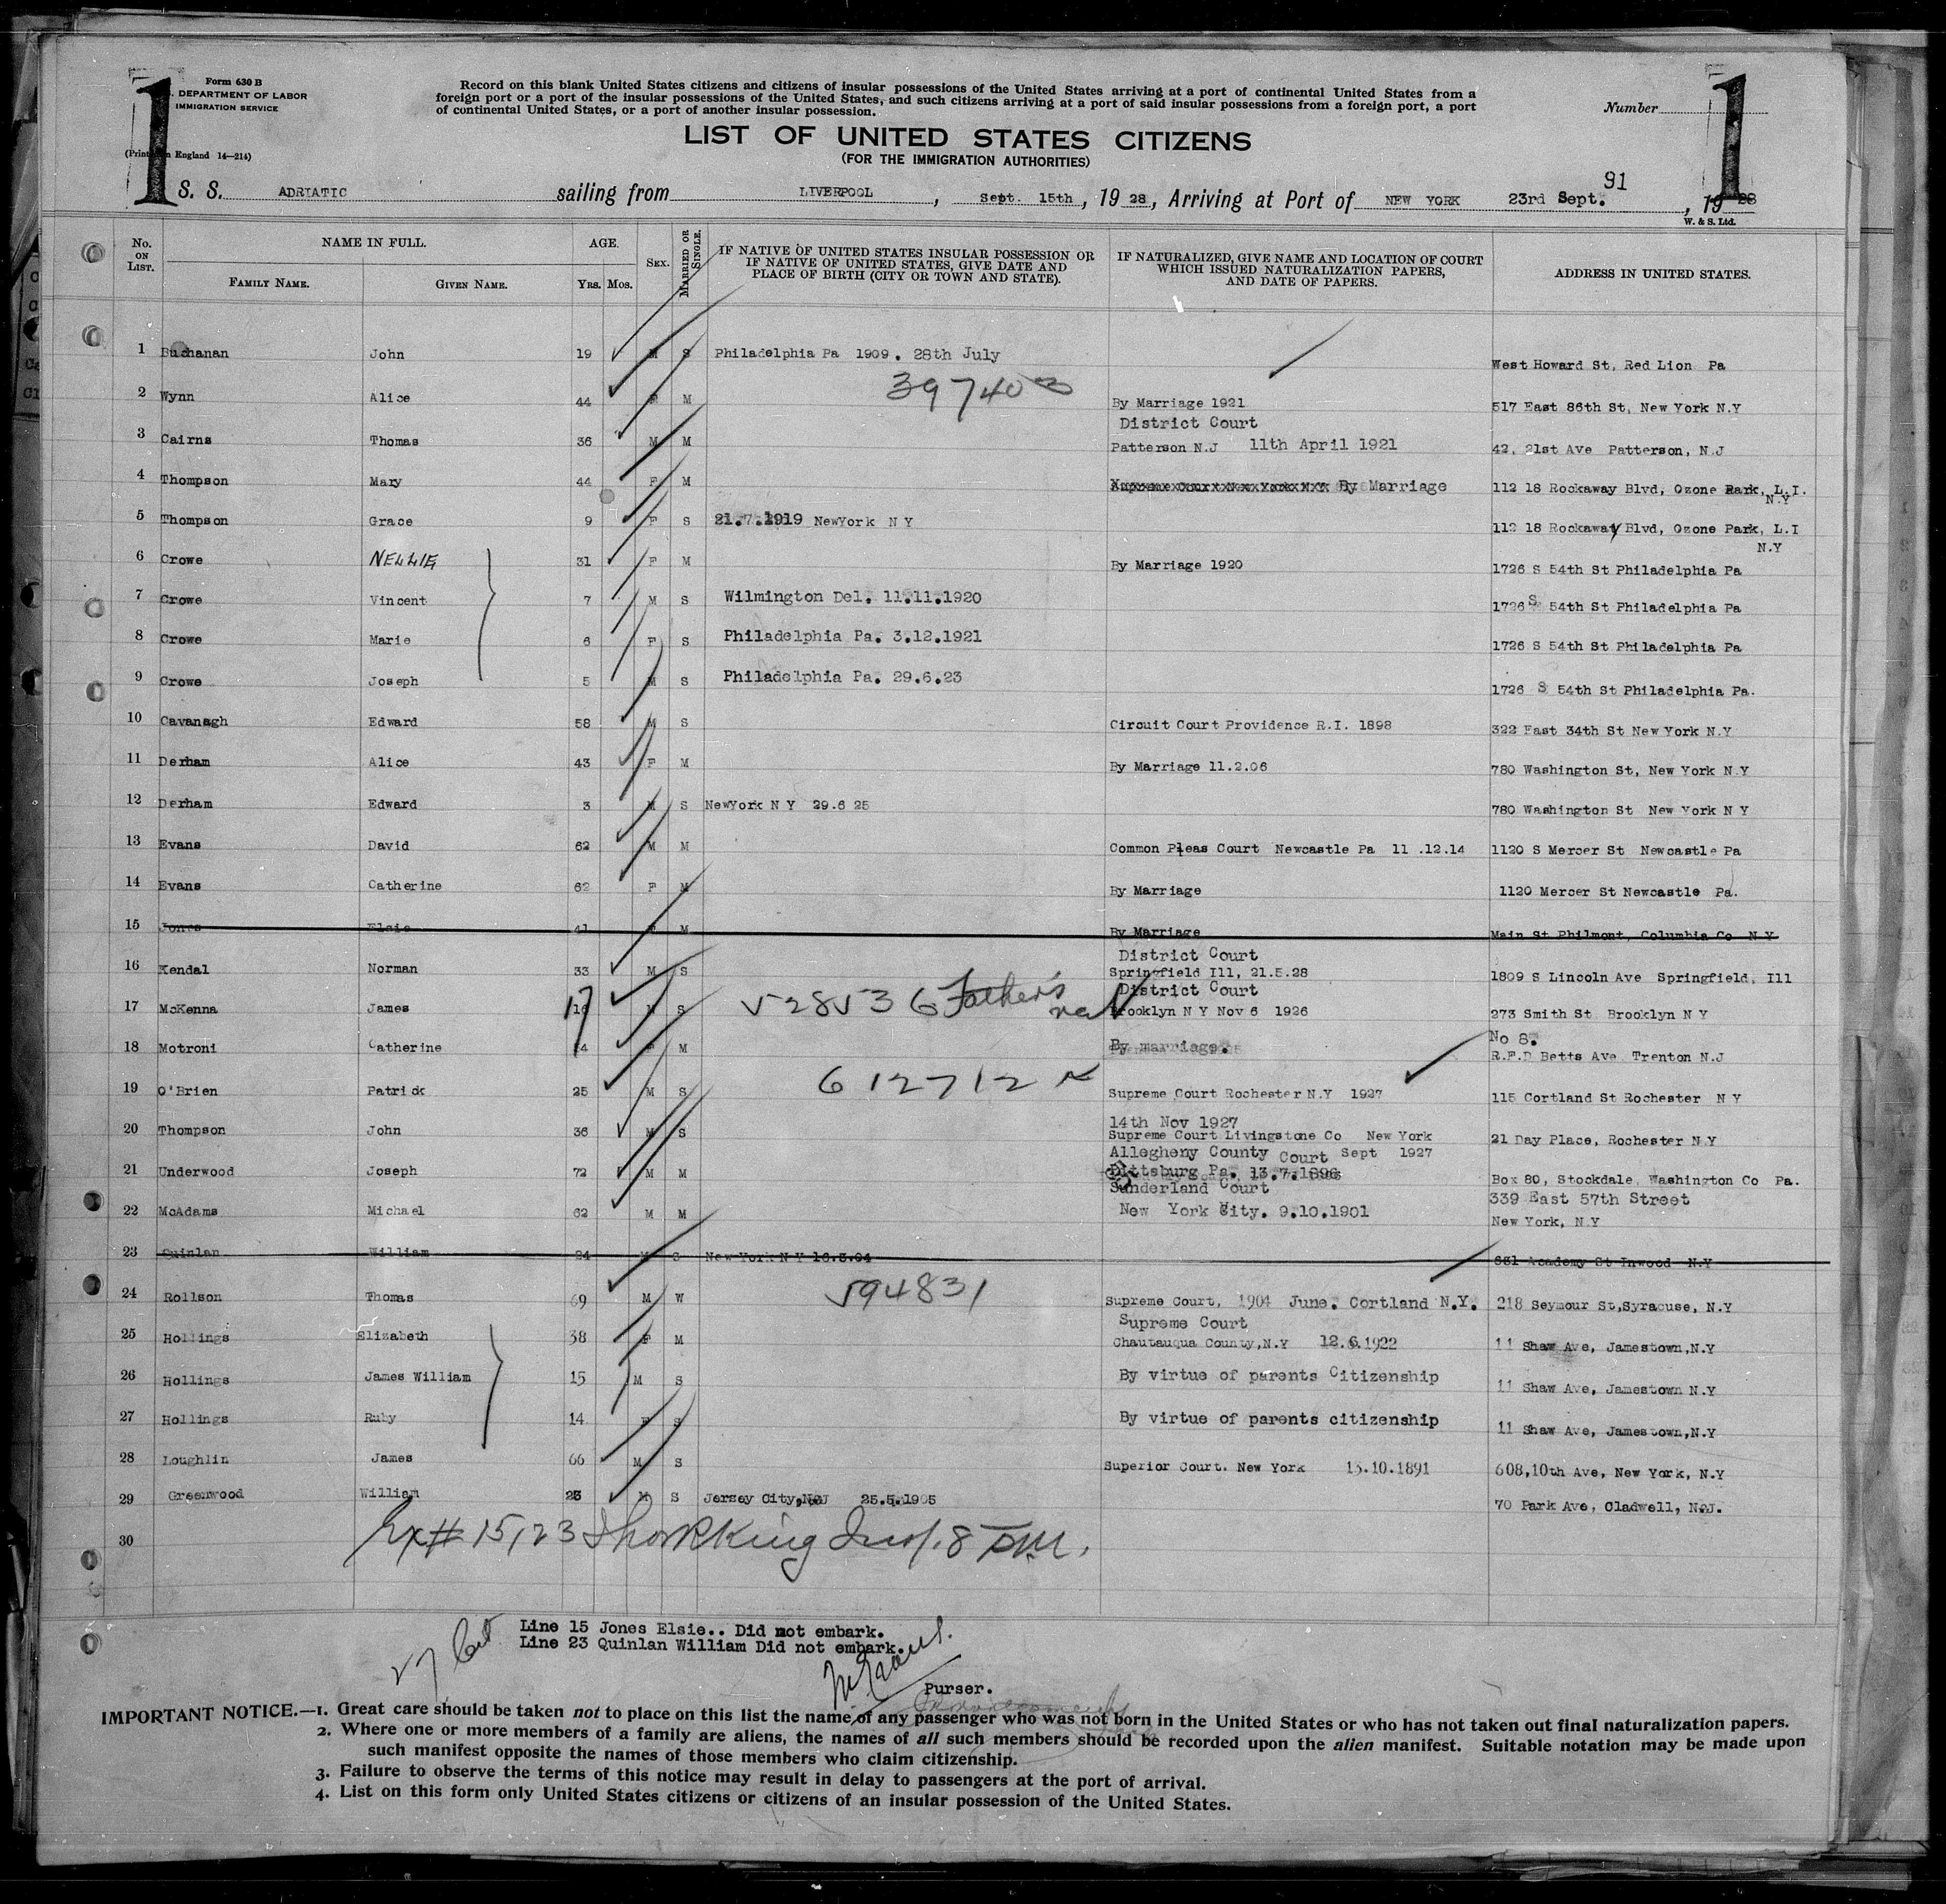 1
1
Form 630 B
. DEPARTMENT OF LABOR
IMMIGRATION SERVICE
(Print in England 14—214)
Record on this blank United States citizens and citizens of insular possessions of the United States arriving at a port of continental United States from a
foreign port or a port of the insular possessions of the United States, and such citizens arriving at a port of said insular possessions from a foreign port, a port
of continental United States, or a port of another insular possession.
Number
LIST OF UNITED STATES CITIZENS
(FOR THE IMMIGRATION AUTHORITIES)
91
S. S. ADRIATIC sailing from LIVERPOOL, Sept. 15th, 19 28, Arriving at Port of NEW YORK 23rd Sept., 19 28
W. & S. Ltd.
No. ON LIST. NAME IN FULL. FAMILY NAME. GIVEN NAME. AGE. YRS. MOS. SEX. MARRIED OR SINGLE. IF NATIVE OF UNITED STATES INSULAR POSSESSION OR IF NATIVE OF UNITED STATES, GIVE DATE AND PLACE OF BIRTH (CITY OR TOWN AND STATE). IF NATURALIZED, GIVE NAME AND LOCATION OF COURT WHICH ISSUED NATURALIZATION PAPERS, AND DATE OF PAPERS. ADDRESS IN UNITED STATES.
1 Buchanan John 19 M S Philadelphia Pa 1909. 28th July West Howard St, Red Lion Pa
397403
2 Wynn Alice 44 F M By Marriage 1921 517 East 86th St, New York N.Y
District Court
3 Cairns Thomas 36 M M Patterson N.J 11th April 1921 42, 21st Ave Patterson, N.J
4 Thompson Mary 44 F M By Marriage 112 18 Rockaway Blvd, Ozone Park, L.I.
N.Y
5 Thompson Grace 9 F S 21.7.1919 NewYork N Y 112 18 Rockaway Blvd, Ozone Park, L.I
N.Y
6 Crowe NELLIE 31 F M By Marriage 1920 1726 S 54th St Philadelphia Pa
7 Crowe Vincent 7 M S Wilmington Del. 11.11.1920 1726 S 54th St Philadelphia Pa
8 Crowe Marie 6 F S Philadelphia Pa. 3.12.1921 1726 S 54th St Philadelphia Pa
9 Crowe Joseph 5 M S Philadelphia Pa. 29.6.23 1726 S 54th St Philadelphia Pa.
10 Cavanagh Edward 58 M S Circuit Court Providence R.I. 1898 322 East 34th St New York N.Y
11 Derham Alice 43 F M By Marriage 11.2.06 780 Washington St, New York N.Y
12 Derham Edward 3 M S NewYork N Y 29.6 25 780 Washington St New York N Y
13 Evans David 62 M M Common Pleas Court Newcastle Pa 11 .12.14 1120 S Mercer St Newcastle Pa
14 Evans Catherine 62 F M By Marriage 1120 Mercer St Newcastle Pa.
15 Jones Elsie 41 F M By Marriage Main St Philmont, Columbia Co N.Y
District Court
16 Kendal Norman 33 M S Springfield Ill, 21.5.28 1809 S Lincoln Ave Springfield, Ill
District Court
17 McKenna James 17 M S 528536 Father's Brooklyn N Y Nov 6 1926 273 Smith St Brooklyn N Y
No 8.
18 Motroni Catherine F M By marriage. R.F.D Betts Ave Trenton N.J
612712
19 O'Brien Patrick 25 M S Supreme Court Rochester N.Y 1927 115 Cortland St Rochester N Y
14th Nov 1927
20 Thompson John 36 M S Supreme Court Livingstone Co New York 21 Day Place, Rochester N.Y
Allegheny County Court Sept 1927
21 Underwood Joseph 72 M M Pittsburg Pa. 13.7.1896 Box 80, Stockdale, Washington Co Pa.
Sunderland Court 339 East 57th Street
22 McAdams Michael 62 M M New York City. 9.10.1901 New York, N.Y
23 Quinlan William 24 M S New York N Y 16.3.04 631 Academy St Inwood N.Y
594831
24 Rollson Thomas 69 M W Supreme Court, 1904 June. Cortland N.Y. 218 Seymour St,Syracuse, N.Y
Supreme Court
25 Hollings Elizabeth 38 F M Chautauqua County,N.Y 12.6.1922 11 Shaw Ave, Jamestown,N.Y
26 Hollings James William 15 M S By virtue of parents Citizenship 11 Shaw Ave, Jamestown N.Y
27 Hollings Ruby 14 F S By virtue of parents citizenship 11 Shaw Ave, Jamestown,N.Y
28 Loughlin James 66 M S Superior Court. New York 13.10.1891 608,10th Ave, New York, N.Y
29 Greenwood William 23 M S Jersey City,N.J 25.5.1905 70 Park Ave, Cladwell, N.J.
30
Ex# 15,23 Insp. 8 PM.
Line 15 Jones Elsie.. Did not embark.
Line 23 Quinlan William Did not embark.
27 Cit
Purser.
IMPORTANT NOTICE.—1. Great care should be taken not to place on this list the name of any passenger who was not born in the United States or who has not taken out final naturalization papers.
2. Where one or more members of a family are aliens, the names of all such members should be recorded upon the alien manifest. Suitable notation may be made upon
such manifest opposite the names of those members who claim citizenship.
3. Failure to observe the terms of this notice may result in delay to passengers at the port of arrival.
4. List on this form only United States citizens or citizens of an insular possession of the United States.